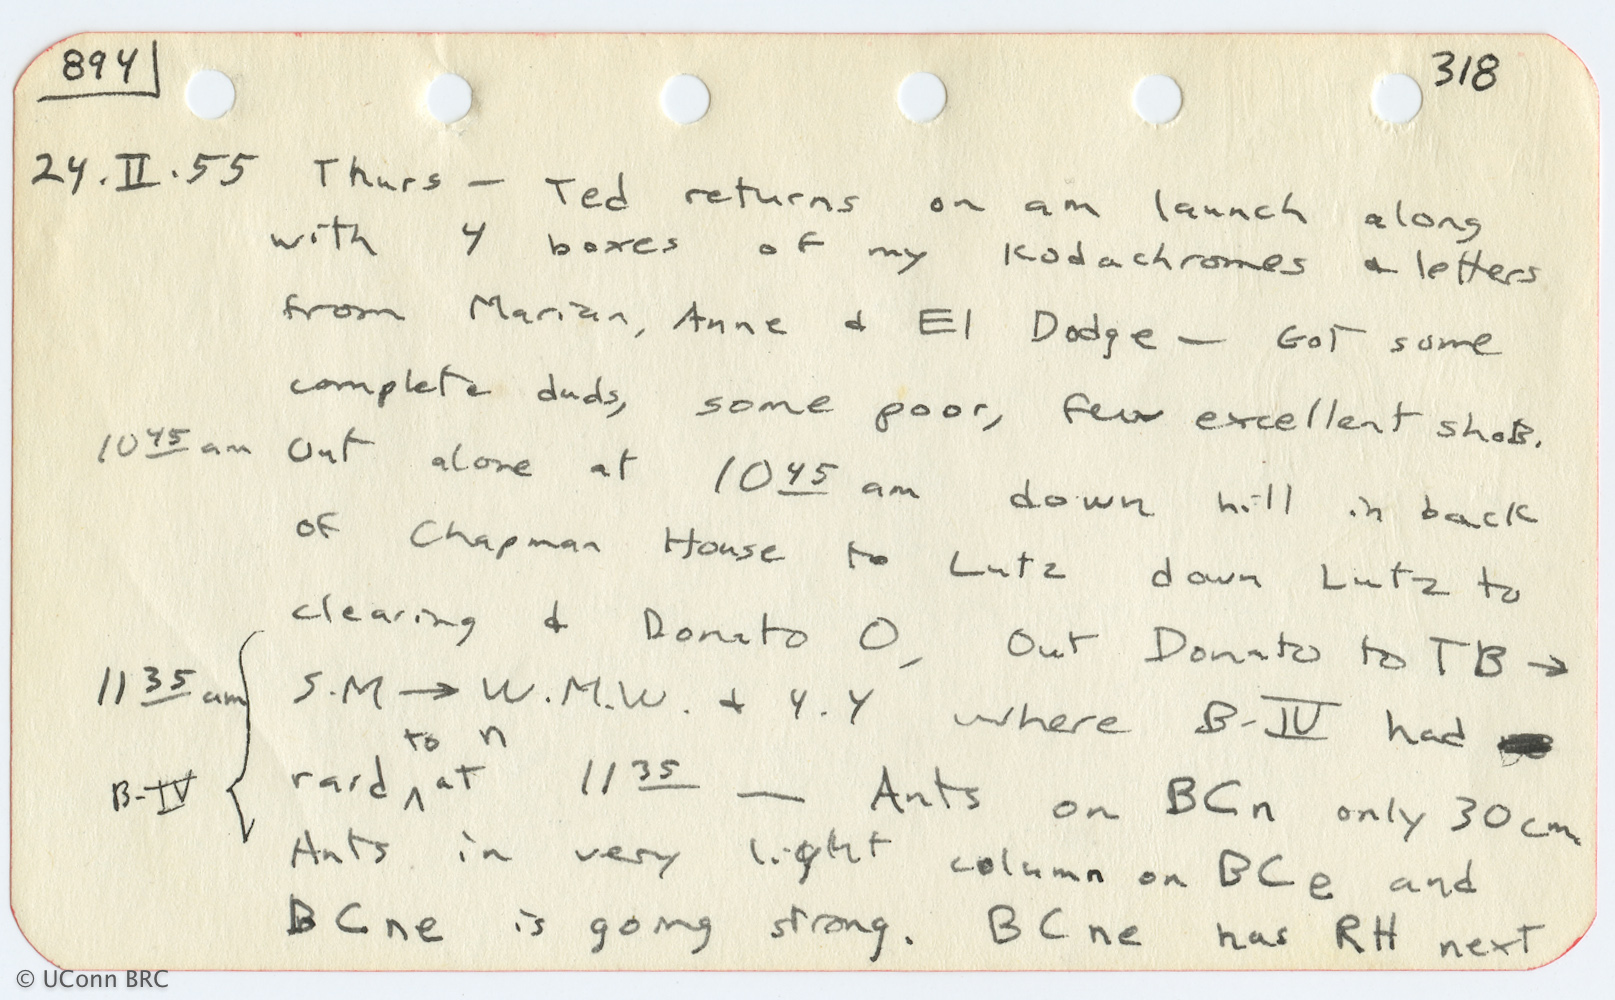 894 318
24.II.55 Thurs — Ted returns on am launch along
with 4 boxes of my Kodachromes & letters
from Marian, Anne & El Dodge — Got some
complete duds, some poor, few excellent shots.
10 45 am Out alone at 10 45 am down hill in back
of Chapman House to Lutz down Lutz to
clearing & Donato O, Out Donato to TB →
11 35 am S.M → W.M.W. & Y.Y where B-IV had
to n
B-IV rard ^ at 11 35 — Ants on BCn only 30 cm
Ants in very light column on BCe and
BCne is going strong. BCne has RH next
© UConn BRC